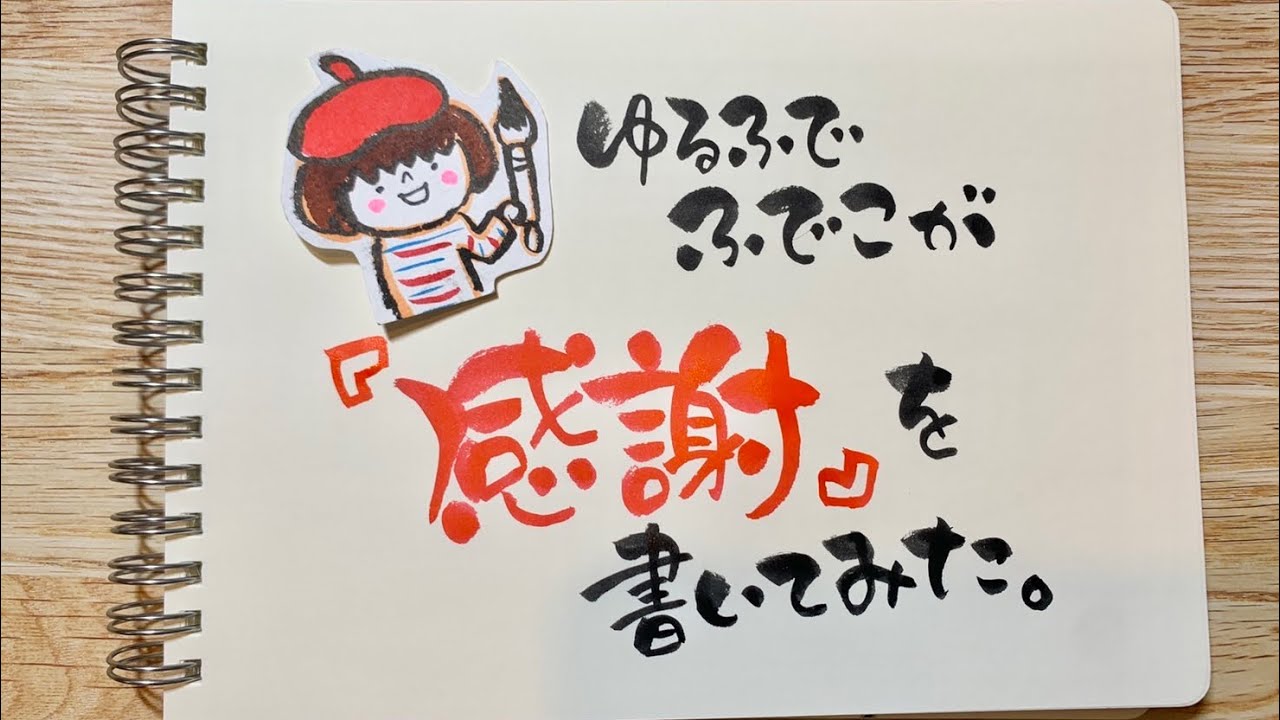 ゆるふで
ふでこが
『感謝』を
書いてみた。